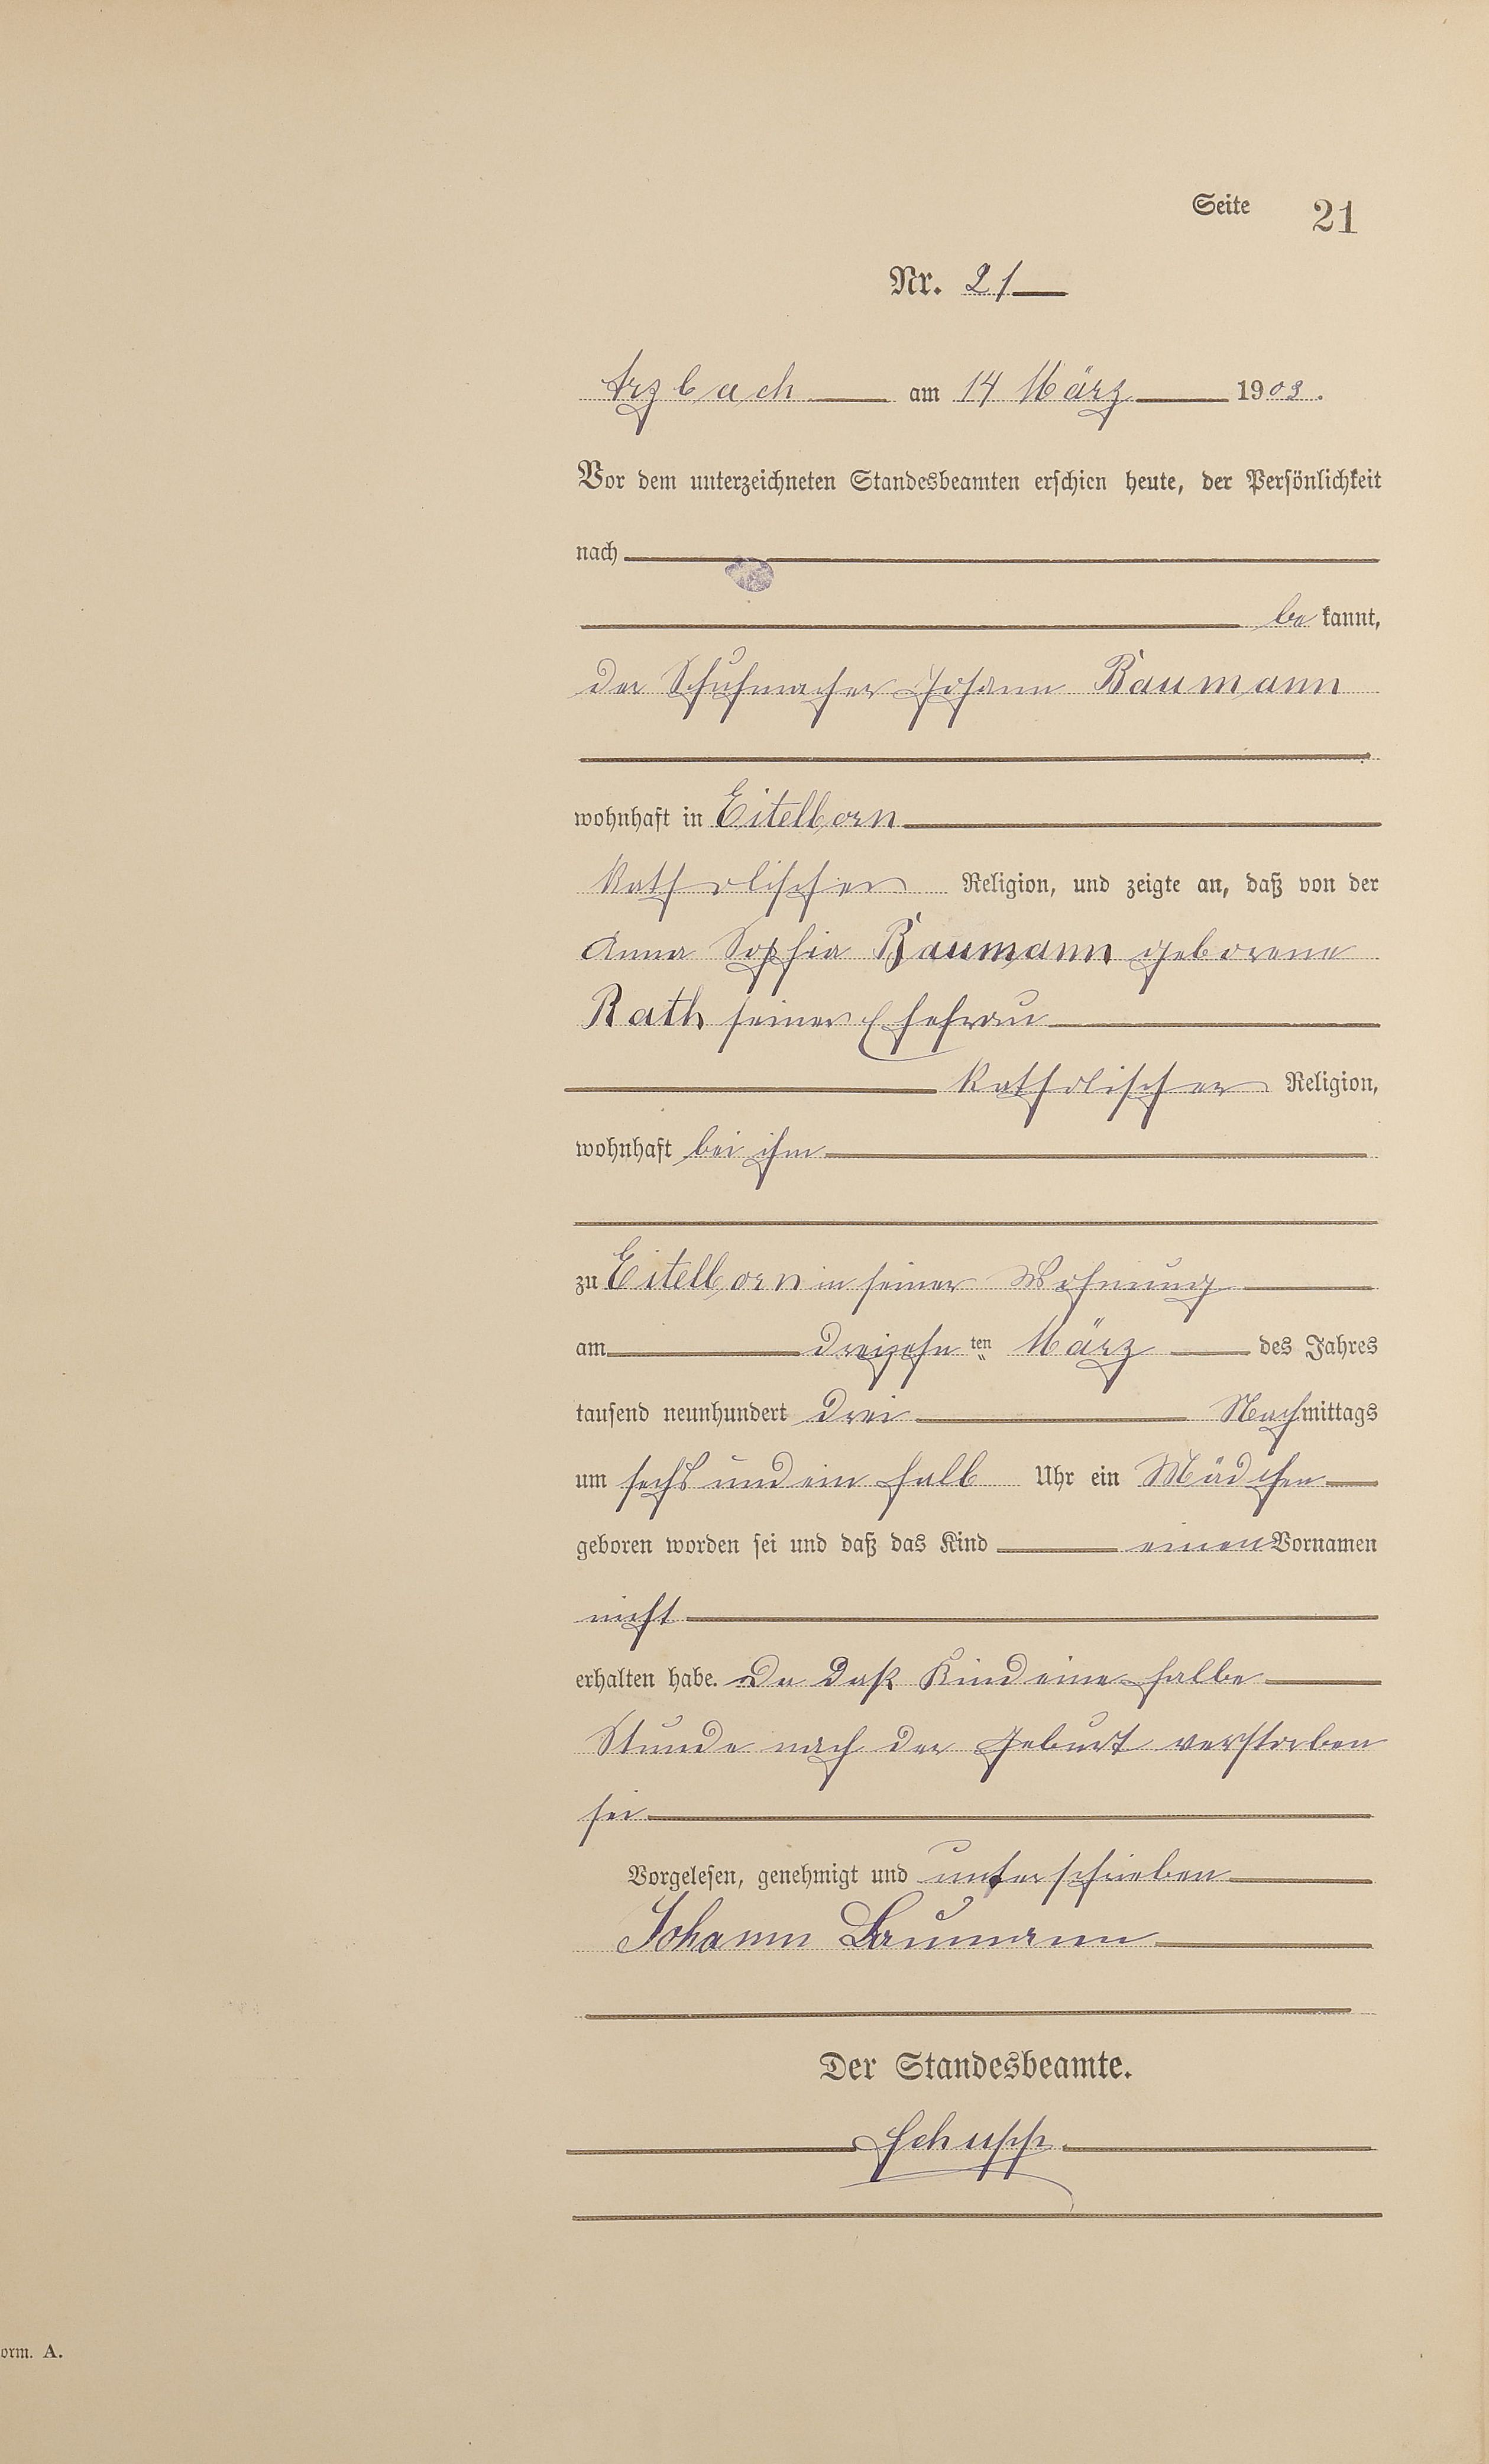 Seite 21
Nr. 21
Arzbach am 14 März 1903.
Vor dem unterzeichneten Standesbeamten erschien heute, der Persönlichkeit
nach
bekannt,
der Schuhmacher Johann Baumann
wohnhaft in Eitelborn
katholischer Religion, und zeigte an, daß von der
Anna Sophia Baumann geborene
Rath seiner Ehefrau
katholischer Religion,
wohnhaft bei ihm
zu Eitelborn in seiner Wohnung
am dreizehnten März des Jahres
tausend neunhundert drei Nachmittags
um sechs und ein halb Uhr ein Mädchen
geboren worden sei und daß das Kind einen Vornamen
nicht
erhalten habe. Da daß Kind eine halbe
Stunde nach der Geburt verstorben
sei
Vorgelesen, genehmigt und unterschrieben
Johann Baumann
Der Standesbeamte.
Schupp
orm. A.